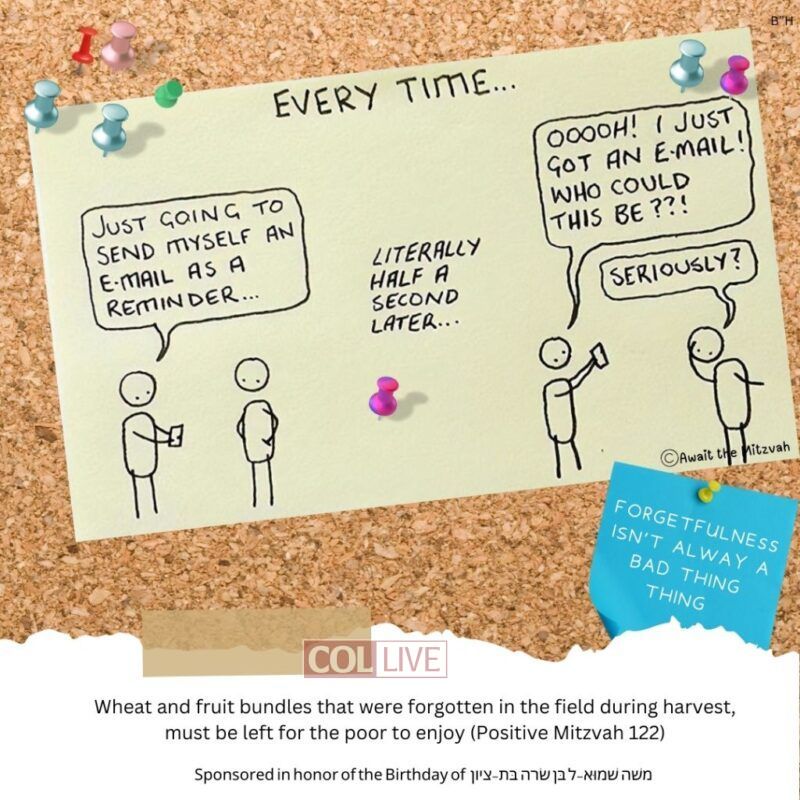 B"H
EVERY TIME...
JUST GOING TO
SEND MYSELF AN
E-MAIL AS A
REMINDER...
LITERALLY
HALF A
SECOND
LATER...
OOOOH! I JUST
GOT AN E-MAIL!
WHO COULD
THIS BE??!
SERIOUSLY?
©Await the Mitzvah
FORGETFULNESS
ISN'T ALWAY A
BAD THING
THING
COL LIVE
Wheat and fruit bundles that were forgotten in the field during harvest,
must be left for the poor to enjoy (Positive Mitzvah 122)
Sponsored in honor of the Birthday of משה שמוא-ל בן שרה בת-ציון